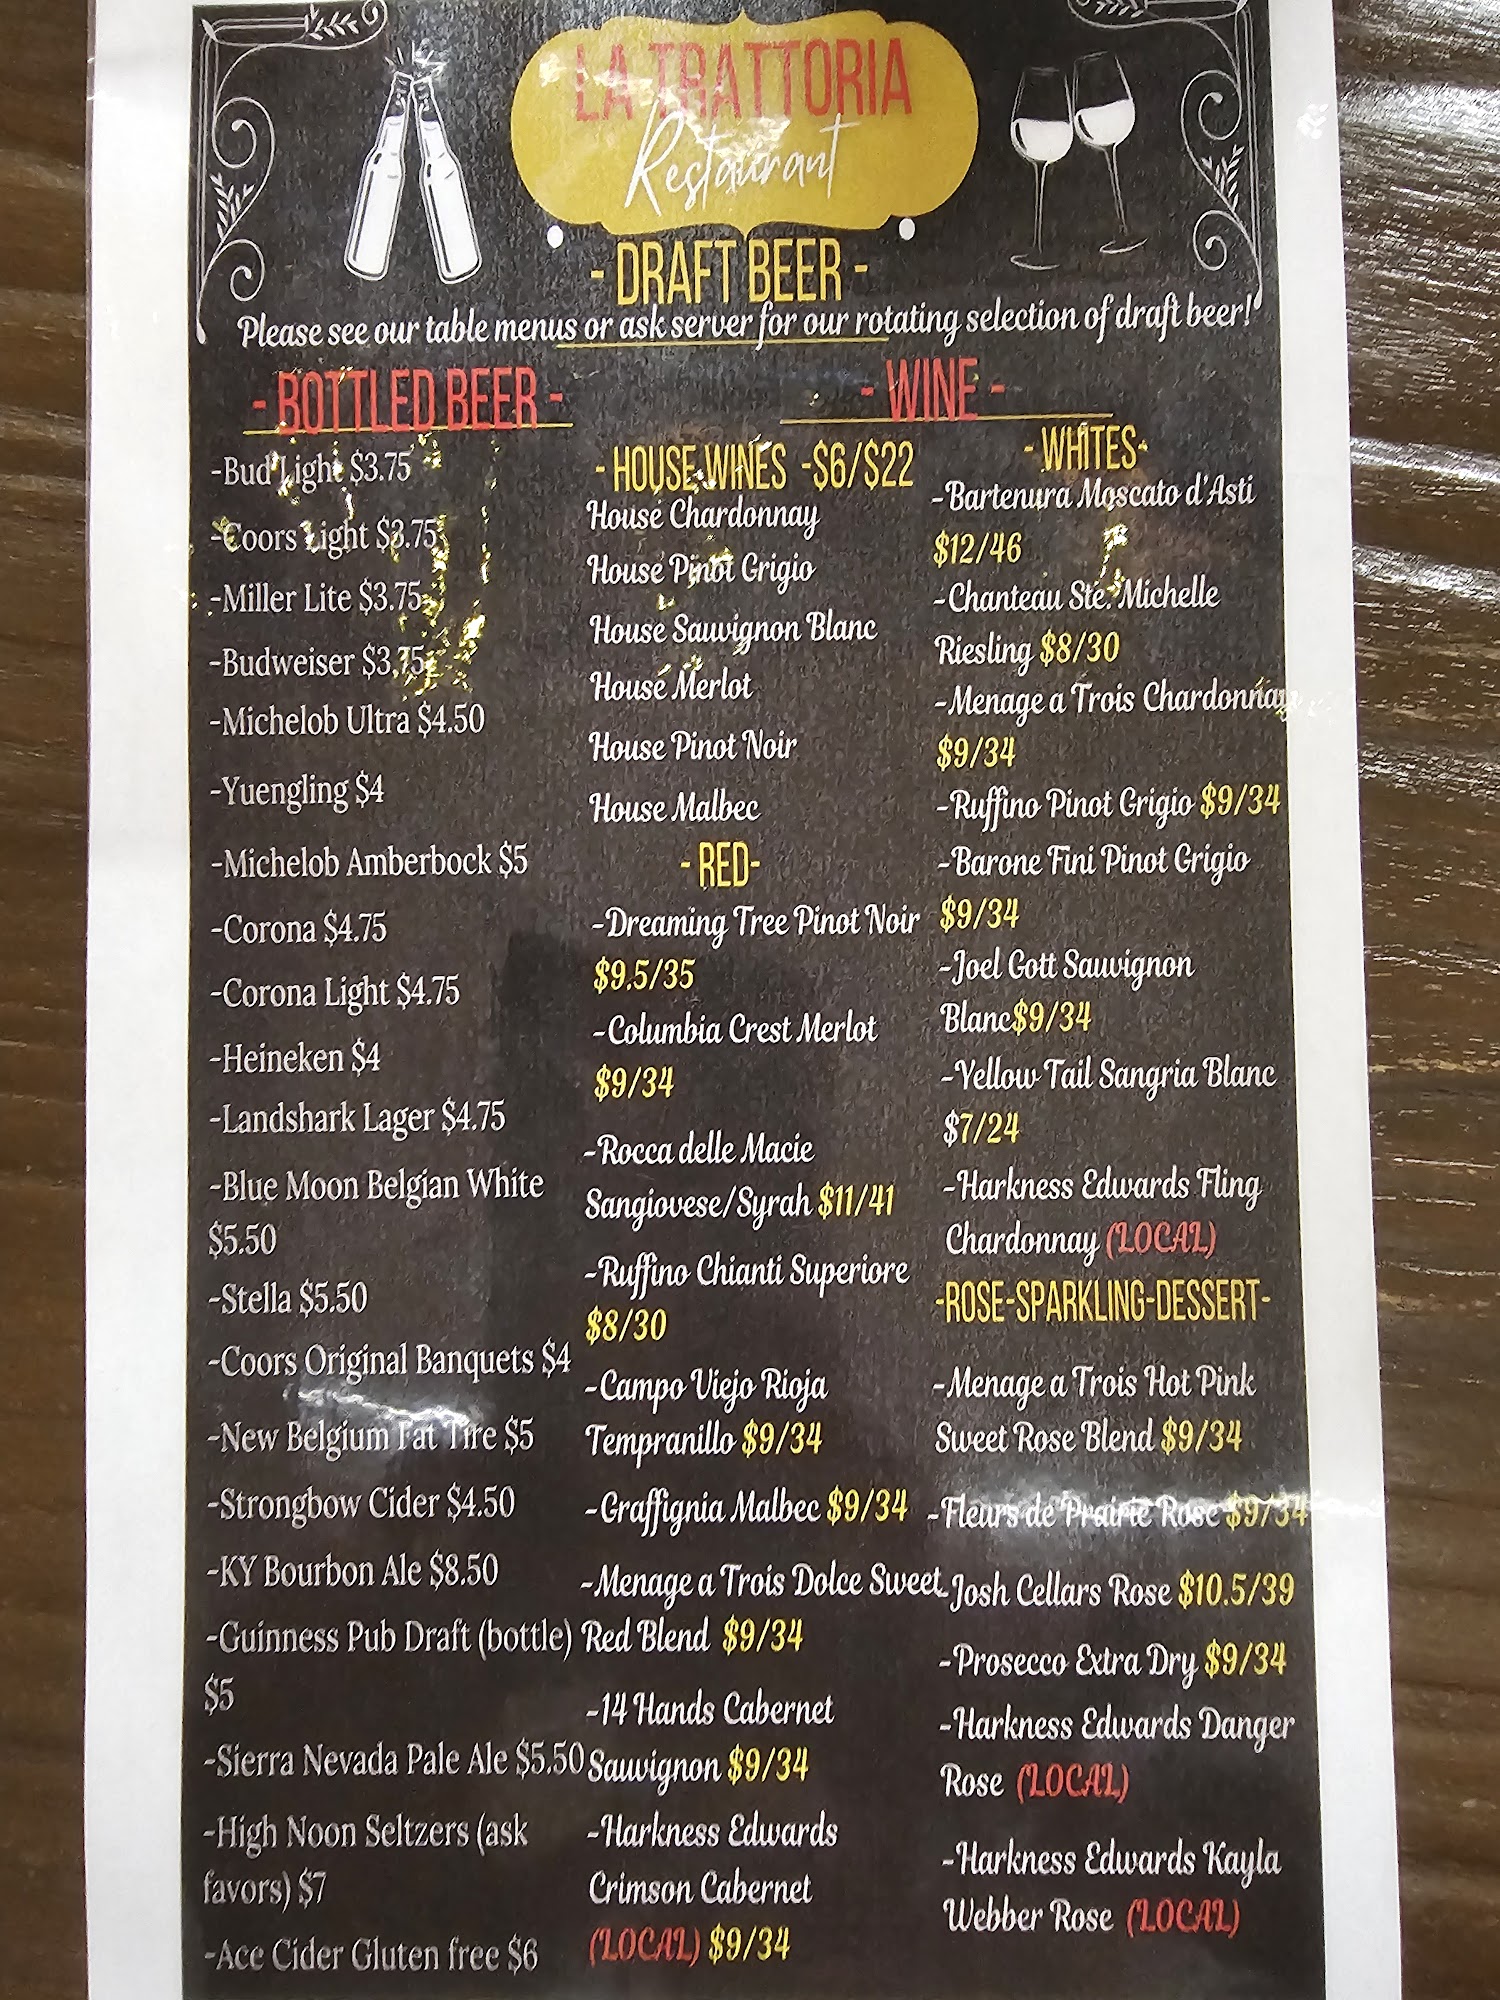 LA TRATTORIA
Restaurant
- DRAFT BEER -
Please see our table menus or ask server for our rotating selection of draft beer!
- BOTTLED BEER -
-Bud Light $3.75
-Coors Light $3.75
-Miller Lite $3.75
-Budweiser $3.75
-Michelob Ultra $4.50
-Yuengling $4
-Michelob Amberbock $5
-Corona $4.75
-Corona Light $4.75
-Heineken $4
-Landshark Lager $4.75
-Blue Moon Belgian White
$5.50
-Stella $5.50
-Coors Original Banquets $4
-New Belgium Fat Tire $5
-Strongbow Cider $4.50
-KY Bourbon Ale $8.50
-Guinness Pub Draft (bottle)
$5
-Sierra Nevada Pale Ale $5.50
-High Noon Seltzers (ask
favors) $7
-Ace Cider Gluten free $6
- WINE -
- HOUSE WINES -$6/$22
House Chardonnay
House Pinot Grigio
House Sauvignon Blanc
House Merlot
House Pinot Noir
House Malbec
- RED-
-Dreaming Tree Pinot Noir
$9.5/35
-Columbia Crest Merlot
$9/34
-Rocca delle Macie
Sangiovese/Syrah $11/41
-Ruffino Chianti Superiore
$8/30
-Campo Viejo Rioja
Tempranillo $9/34
-Graffignia Malbec $9/34
-Menage a Trois Dolce Sweet
Red Blend $9/34
-14 Hands Cabernet
Sauvignon $9/34
-Harkness Edwards
Crimson Cabernet
(LOCAL) $9/34
- WHITES-
-Bartenura Moscato d'Asti
$12/46
-Chanteau Ste. Michelle
Riesling $8/30
-Menage a Trois Chardonnay
$9/34
-Ruffino Pinot Grigio $9/34
-Barone Fini Pinot Grigio
$9/34
-Joel Gott Sauvignon
Blanc$9/34
-Yellow Tail Sangria Blanc
$7/24
-Harkness Edwards Fling
Chardonnay (LOCAL)
-ROSE-SPARKLING-DESSERT-
-Menage a Trois Hot Pink
Sweet Rose Blend $9/34
-Fleurs de Prairie Rose $9/34
-Josh Cellars Rose $10.5/39
-Prosecco Extra Dry $9/34
-Harkness Edwards Danger
Rose (LOCAL)
-Harkness Edwards Kayla
Webber Rose (LOCAL)